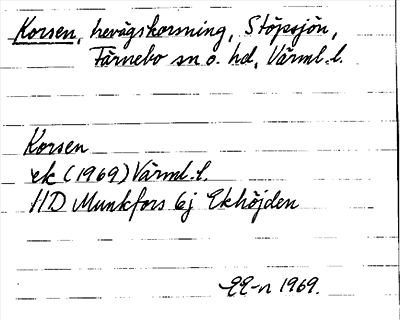 Korsen, trevägskorsning, Stöpsjön,
Färnebo sn o. hd, Värml. l.
Korsen
ek (1969) Värml. l.
11D Munkfors 6j Ekhöjden
1969.